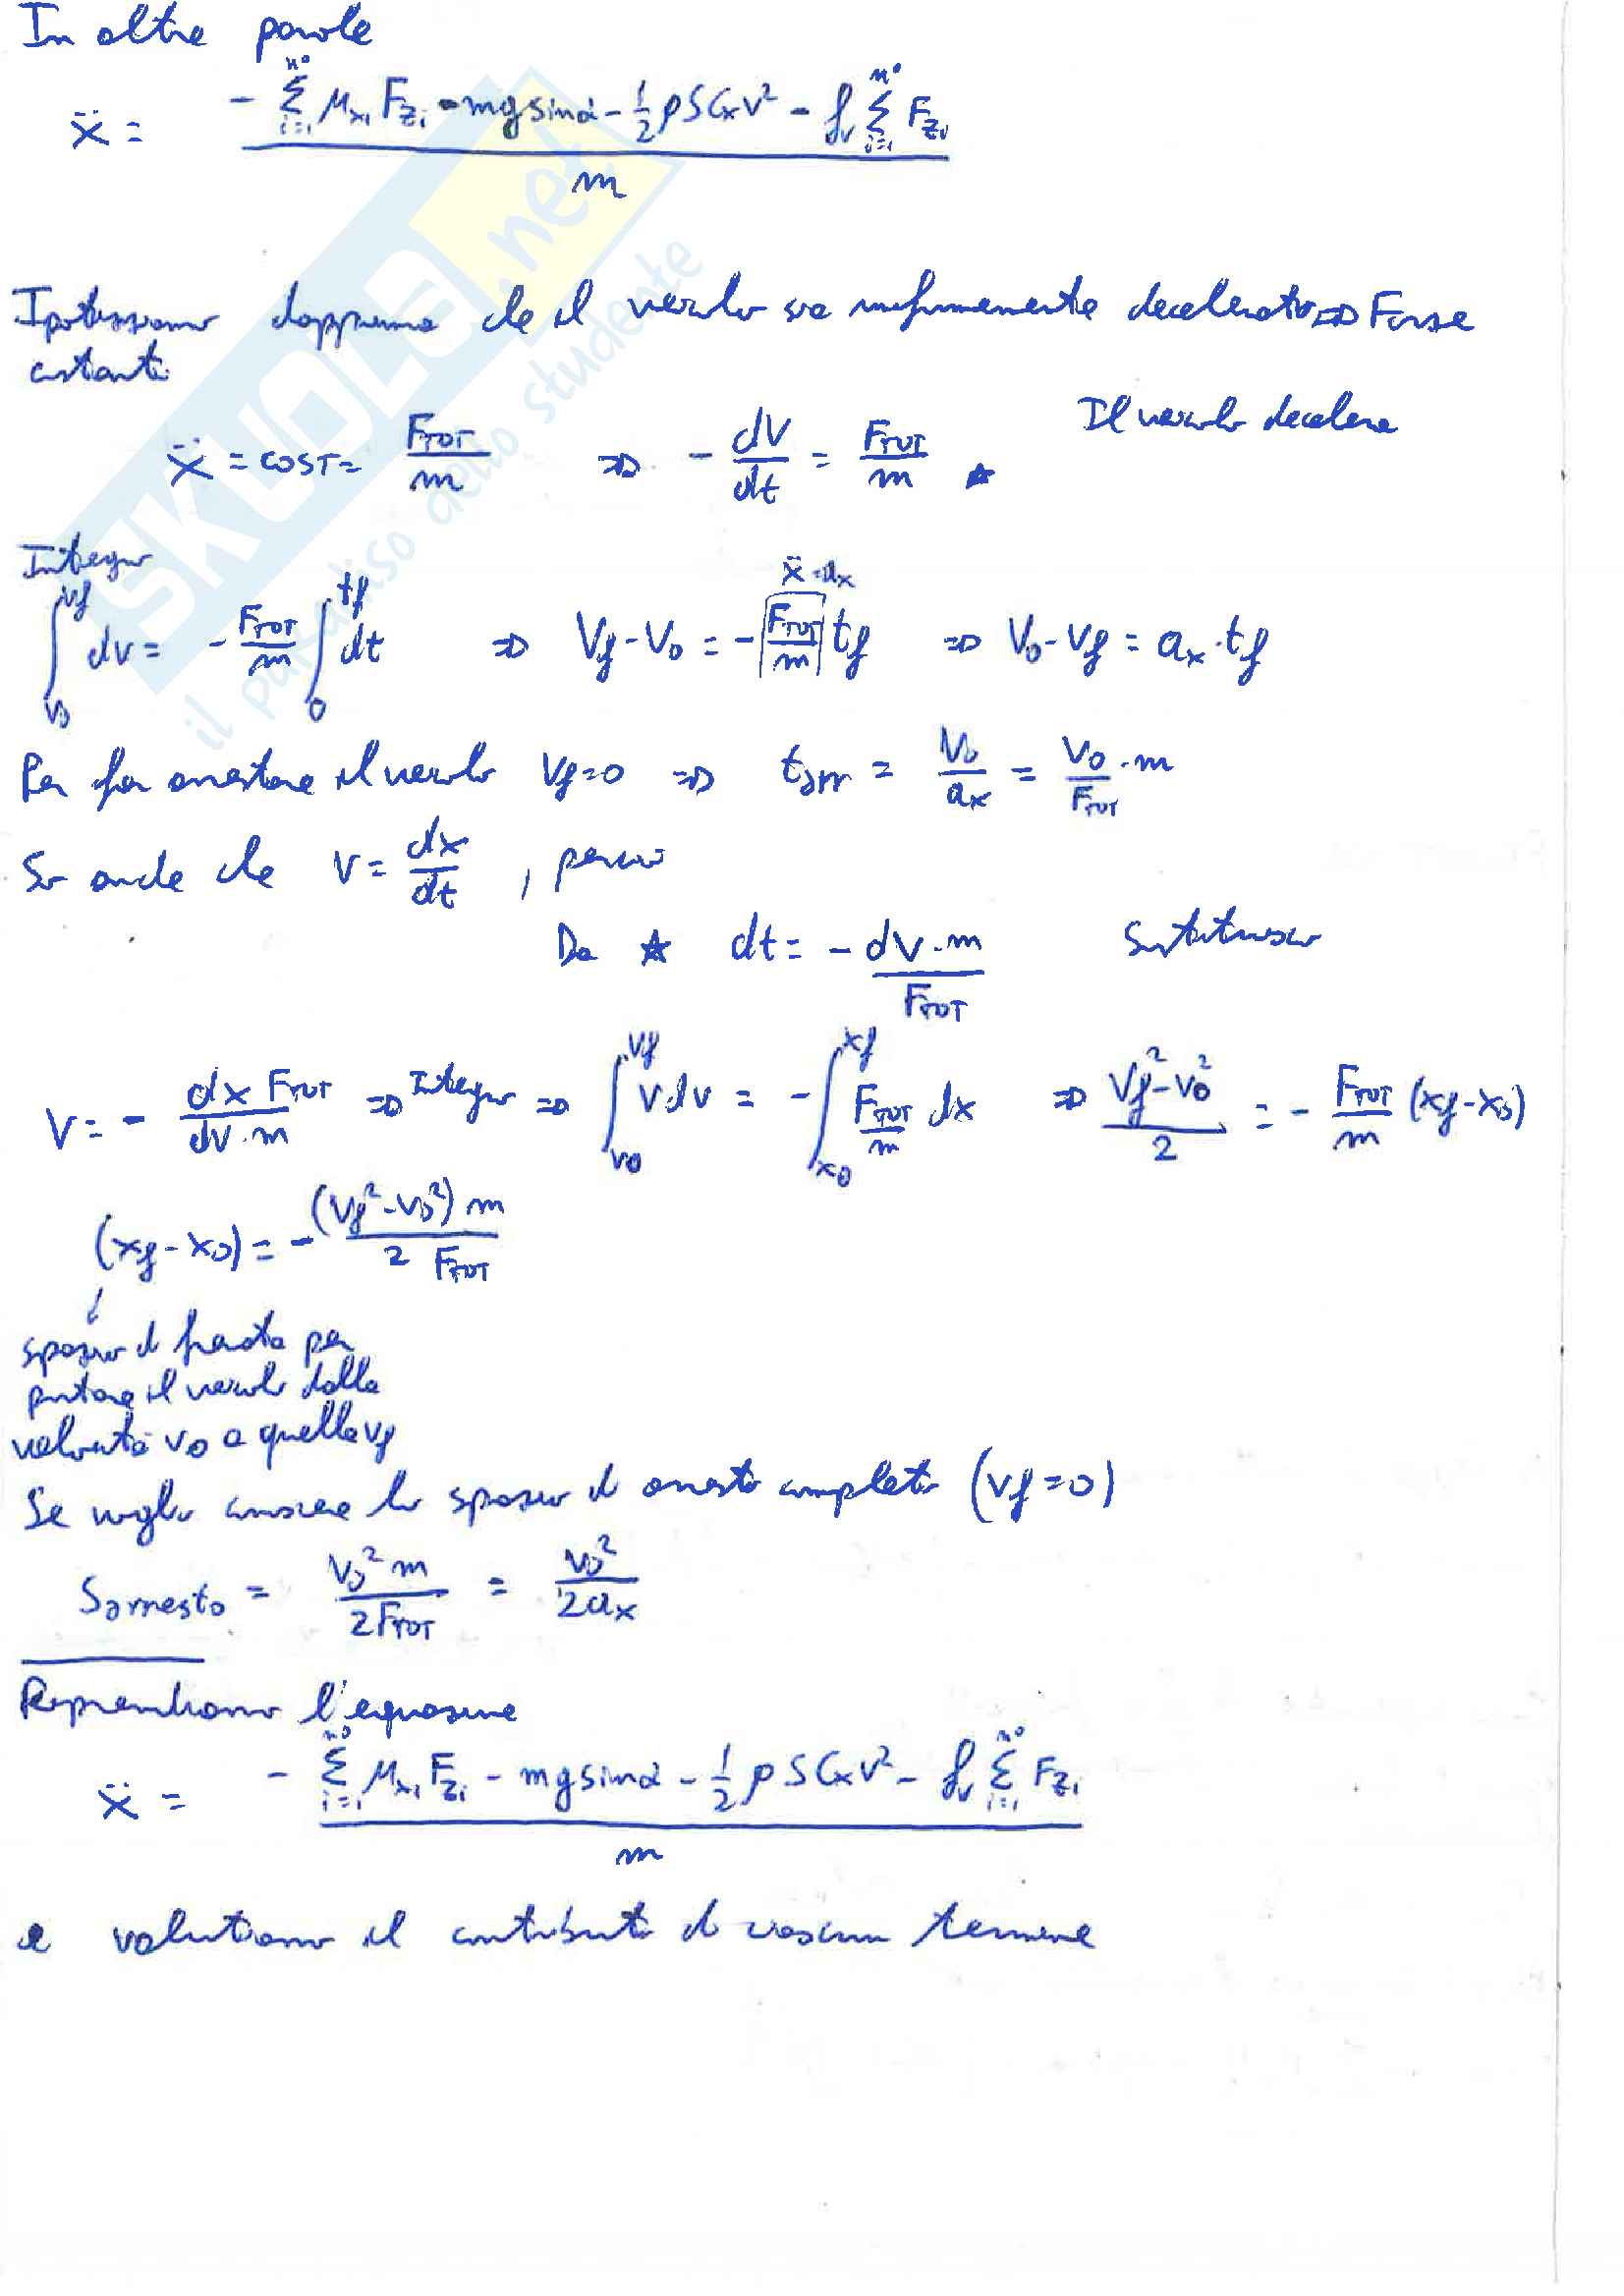 In altre parole
ẍ = (- Σ_{i=1}^{n°} μ_{xi} F_{zi} - mg sinα - 1/2 ρ S Cx V² - f_v Σ_{i=1}^{n°} F_{zi}) / m
Ipotizziamo dapprima che il veicolo sia uniformemente decelerato => Forze
costanti
ẍ = cost = F_TOT / m => - dV/dt = F_TOT / m ★ Il veicolo decelera
Integro
∫_{v0}^{vf} dv = - F_TOT/m ∫_0^{tf} dt => Vf - V0 = - F_TOT/m tf => V0 - Vf = ax · tf
ẍ = ax
Per far arrestare il veicolo Vf = 0 => t_arr = V0/ax = V0/F_TOT · m
So anche che V = dx/dt , perciò
Da ★ dt = - dV · m / F_TOT Sostituisco
V = - dx F_TOT / dV · m => Integro => ∫_{v0}^{vf} V dv = - ∫_{x0}^{xf} F_TOT/m dx => (Vf² - V0²)/2 = - F_TOT/m (xf - x0)
(xf - x0) = - (Vf² - V0²) m / 2 F_TOT
↓
spazio di frenata per
portare il veicolo dalla
velocità v0 a quella vf
Se voglio conoscere lo spazio di arresto completo (vf = 0)
S arresto = V0² m / 2 F_TOT = V0² / 2ax
Riprendiamo l'equazione
ẍ = (- Σ_{i=1}^{n°} μ_{xi} F_{zi} - mg sinα - 1/2 ρ S Cx V² - f_v Σ_{i=1}^{n°} F_{zi}) / m
e valutiamo il contributo di ciascun termine
SKUOLA.net
il paradiso dello studente